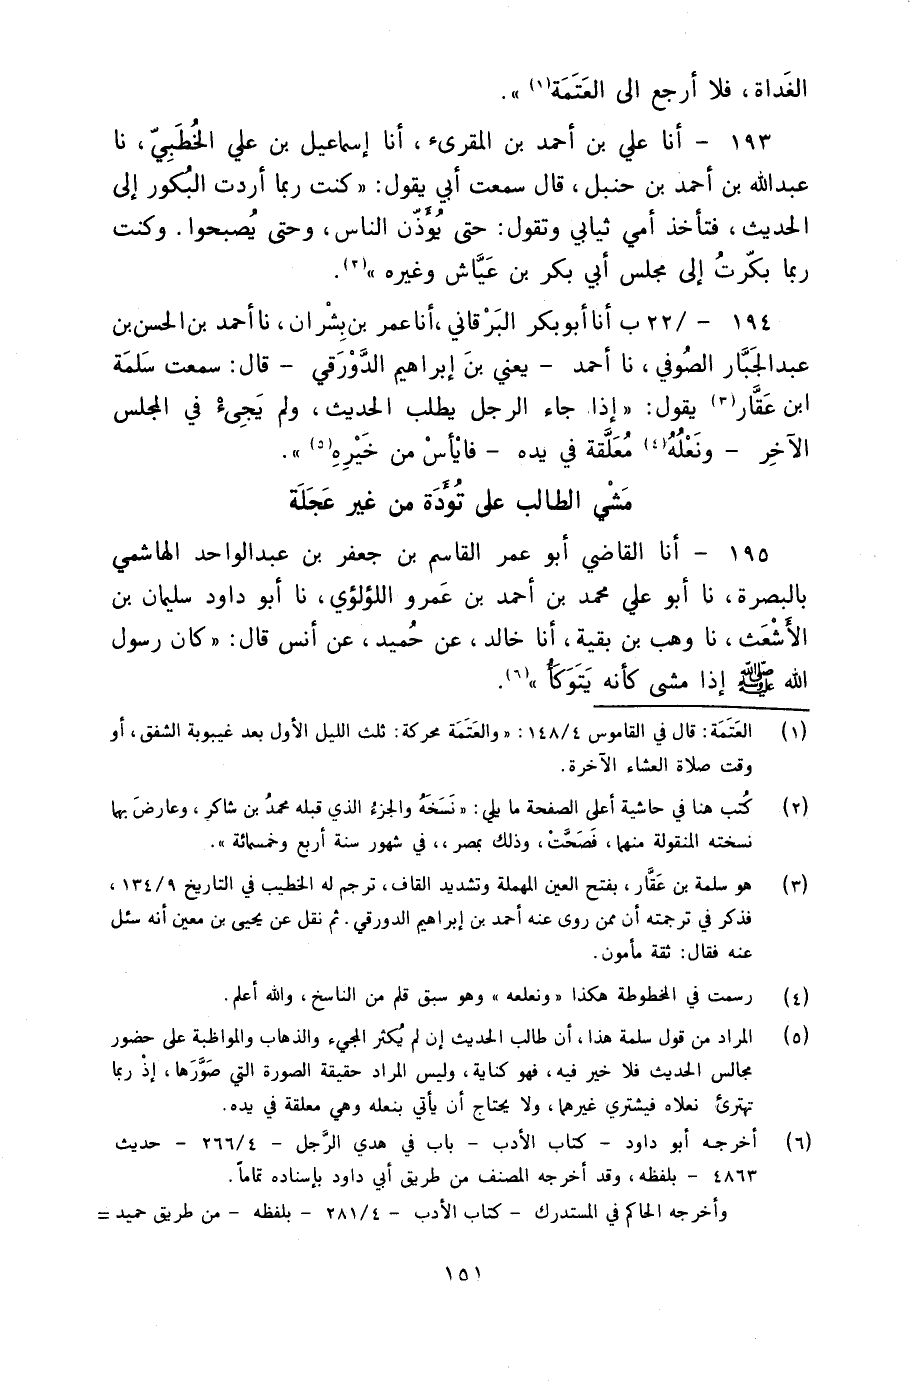 الغَداة، فلا أرجع الى العَتَمَة(١)».
١٩٣ - أنا علي بن أحمد بن المقرىء، أنا إسماعيل بن علي الخُطَبِيّ، نا
عبدالله بن أحمد بن حنبل، قال سمعت أبي يقول: «كنت ربما أردت البُكور إلى
الحديث، فتأخذ أمي ثيابي وتقول: حتى يُؤَذّن الناس، وحتى يُصبحوا. وكنت
ربما بكّرتُ إلى مجلس أبي بكر بن عَيَّاش وغيره»(٢).
١٩٤ - /٢٢ ب أنا أبو بكر البَرْقاني، أنا عمر بن بِشْران، نا أحمد بن الحسن بن
عبدالجَبَّار الصُوفي، نا أحمد - يعني بنَ إبراهيم الدَّوْرَقي - قال: سمعت سَلَمَة
ابن عَقَّار(٣) يقول: «إذا جاء الرجل يطلب الحديث، ولم يَجِيءْ في المجلس
الآخِر - ونَعْلُهُ(٤) مُعَلَّقة في يده - فايْأسْ من خَيْرِهِ(٥)».
مَشْي الطالب على تُؤَدَة من غير عَجَلَة
١٩٥ - أنا القاضي أبو عمر القاسم بن جعفر بن عبدالواحد الهاشمي
بالبصرة، نا أبو علي محمد بن أحمد بن عَمرو اللؤلؤي، نا أبو داود سليمان بن
الأَشْعَث، نا وهب بن بقية، أنا خالد، عن حُميد، عن أنس قال: «كان رسول
الله ﷺ إذا مشى كأنه يَتَوَكَأُ»(٦).
(١) العَتَمَة: قال في القاموس ١٤٨/٤: «والعَتَمَة محركة: ثلث الليل الأول بعد غيبوبة الشفق، أو
وقت صلاة العشاء الآخرة.
(٢) كُتب هنا في حاشية أعلى الصفحة ما يلي: «نَسَخَهُ والجزءُ الذي قبله محمدُ بن شاكر، وعارضَ بها
نسخته المنقولة منها، فَصَحَّتْ، وذلك بمصر،، في شهور سنة أربع وخمسمائة».
(٣) هو سلمة بن عَقَّار، بفتح العين المهملة وتشديد القاف، ترجم له الخطيب في التاريخ ١٣٤/٩،
فذكر في ترجمته أن ممن روى عنه أحمد بن إبراهيم الدورقي. ثم نقل عن يحيى بن معين أنه سئل
عنه فقال: ثقة مأمون.
(٤) رسمت في المخطوطة هكذا «ونعلعه» وهو سبق قلم من الناسخ، والله أعلم.
(٥) المراد من قول سلمة هذا، أن طالب الحديث إن لم يُكثر المجيء والذهاب والمواظبة على حضور
مجالس الحديث فلا خير فيه، فهو كناية، وليس المراد حقيقة الصورة التي صَوَّرَها، إذْ ربما
تهترئ نعلاه فيشتري غيرها، ولا يحتاج أن يأتي بنعله وهي معلقة في يده.
(٦) أخرجه أبو داود - كتاب الأدب - باب في هدي الرَّجل - ٢٦٦/٤ - حديث
٤٨٦٣ - بلفظه، وقد أخرجه المصنف من طريق أبي داود بإسناده تماماً.
وأخرجه الحاكم في المستدرك - كتاب الأدب - ٢٨١/٤ - بلفظه - من طريق حميد =
١٥١